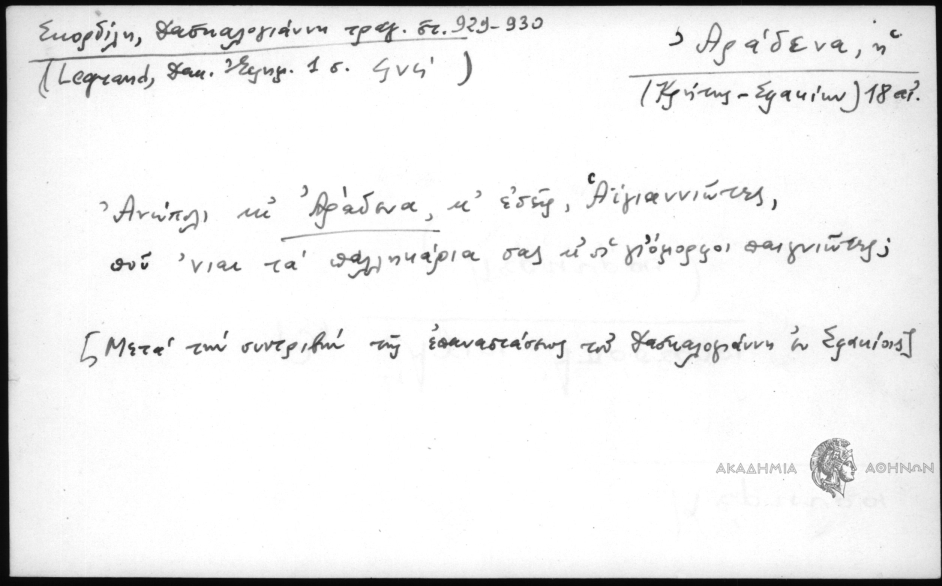 Σκορδίλη, Δασκαλογιάννη τραγ. στ. 929-930
(Legrand, Δακ. Ἐγγρ. 1 σ. ϛνϛ')
Ἀράδενα, ἡ
(Κρήτης-Σφακίων) 18 αἰ.
Ἀνώπολι κι' Ἀράδενα, κ' ἐσεῖς, Ἁϊγιαννιῶτες,
ποῦ 'ναι τὰ παλληκάρια σας κ' οἱ γιόμορφοι παιγνιῶτες;
[Μετὰ τὴν συντριβὴν τῆς ἐπαναστάσεως τοῦ Δασκαλογιάννη ἐν Σφακίοις]
ΑΚΑΔΗΜΙΑ ΑΘΗΝΩΝ